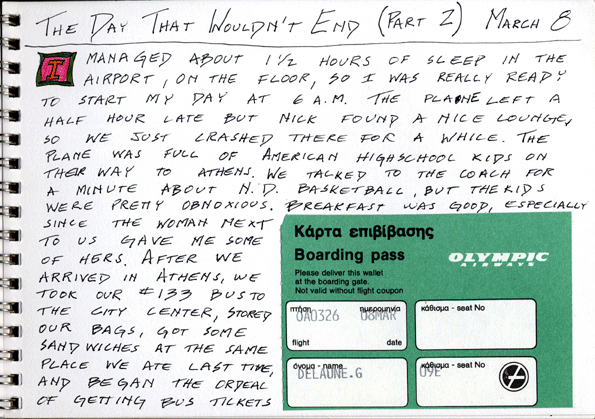 The Day That Wouldn't End (Part 2) March 8
I MANAGED ABOUT 1½ HOURS OF SLEEP IN THE
AIRPORT, ON THE FLOOR, SO I WAS REALLY READY
TO START MY DAY AT 6 A.M. THE PLANE LEFT A
HALF HOUR LATE BUT NICK FOUND A NICE LOUNGE,
SO WE JUST CRASHED THERE FOR A WHILE. THE
PLANE WAS FULL OF AMERICAN HIGHSCHOOL KIDS ON
THEIR WAY TO ATHENS. WE TALKED TO THE COACH FOR
A MINUTE ABOUT N.D. BASKETBALL, BUT THE KIDS
WERE PRETTY OBNOXIOUS. BREAKFAST WAS GOOD, ESPECIALLY
SINCE THE WOMAN NEXT
TO US GAVE ME SOME
OF HERS. AFTER WE
ARRIVED IN ATHENS, WE
TOOK OUR #133 BUS TO
THE CITY CENTER, STORED
OUR BAGS, GOT SOME
SANDWICHES AT THE SAME
PLACE WE ATE LAST TIME,
AND BEGAN THE ORDEAL
OF GETTING BUS TICKETS
Κάρτα επιβίβασης
Boarding pass
OLYMPIC
AIRWAYS
Please deliver this wallet
at the boarding gate.
Not valid without flight coupon
πτήση ημερομηνία
OA0326 08MAR
flight date
κάθισμα - seat No
όνομα - name
DELAUNE.G
κάθισμα - seat No
09E